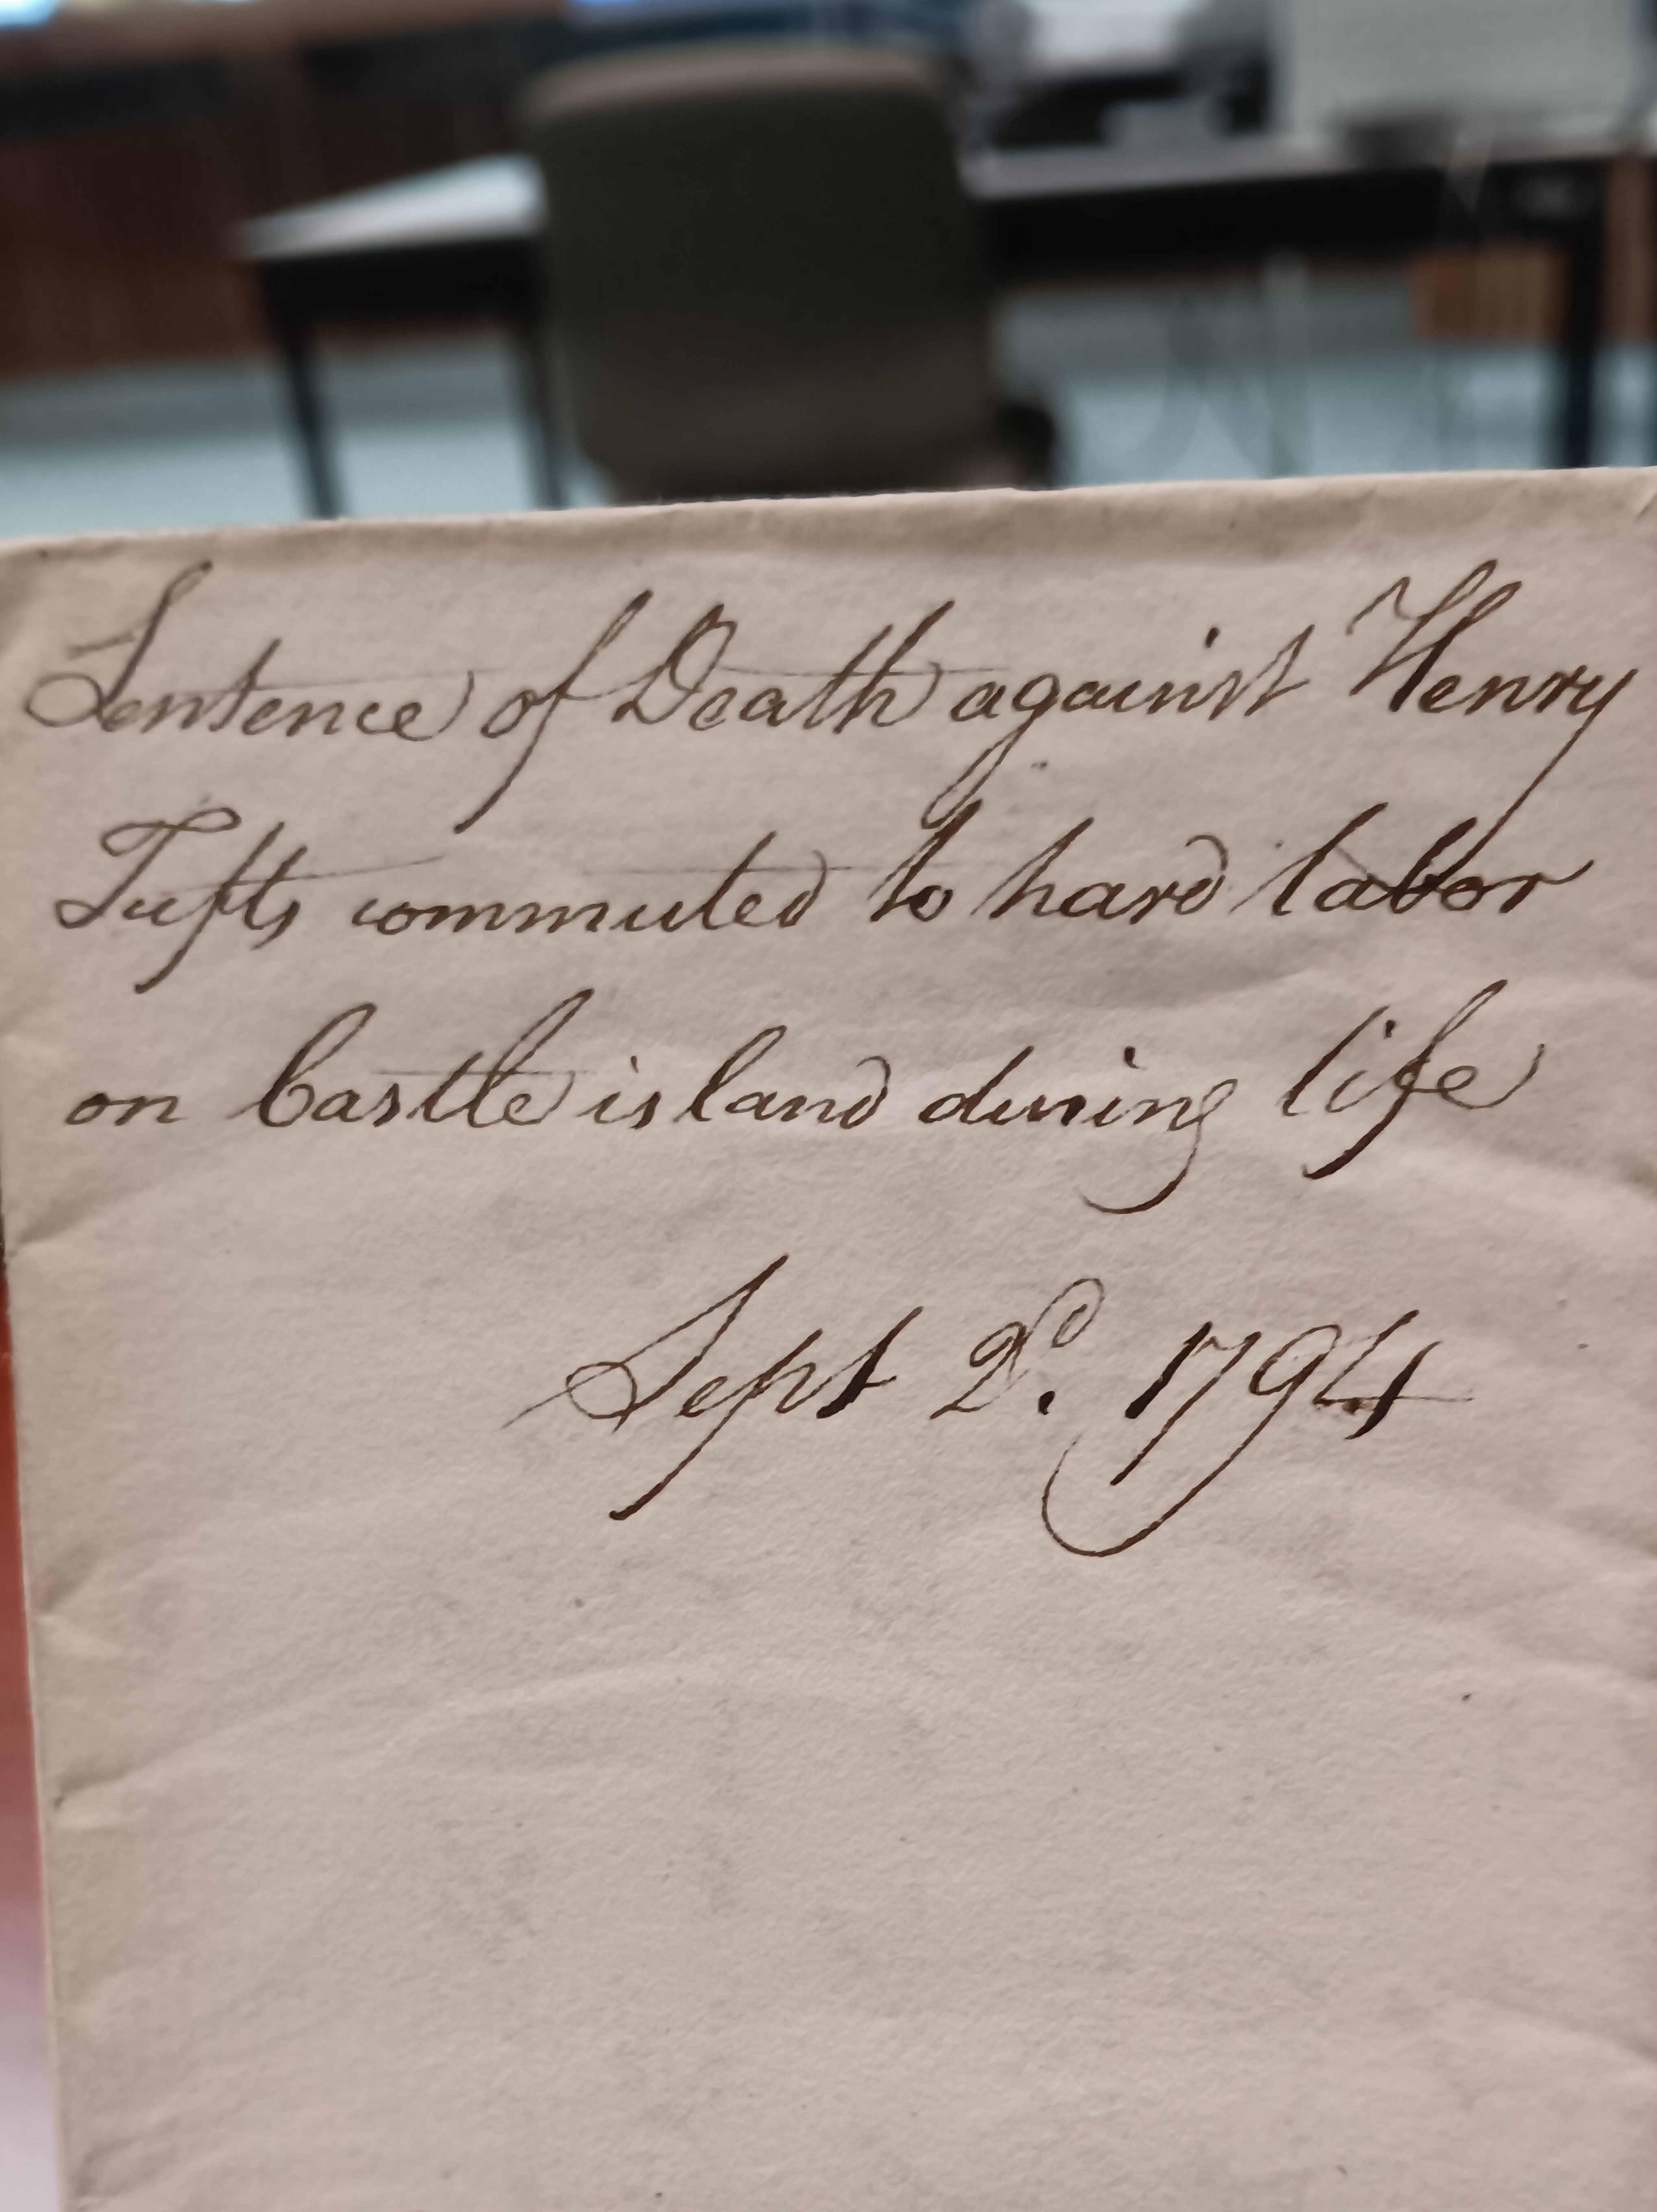 Sentence of Death against Henry
Tufts commuted to hard labor
on Castle island during life
Sept 2d. 1794